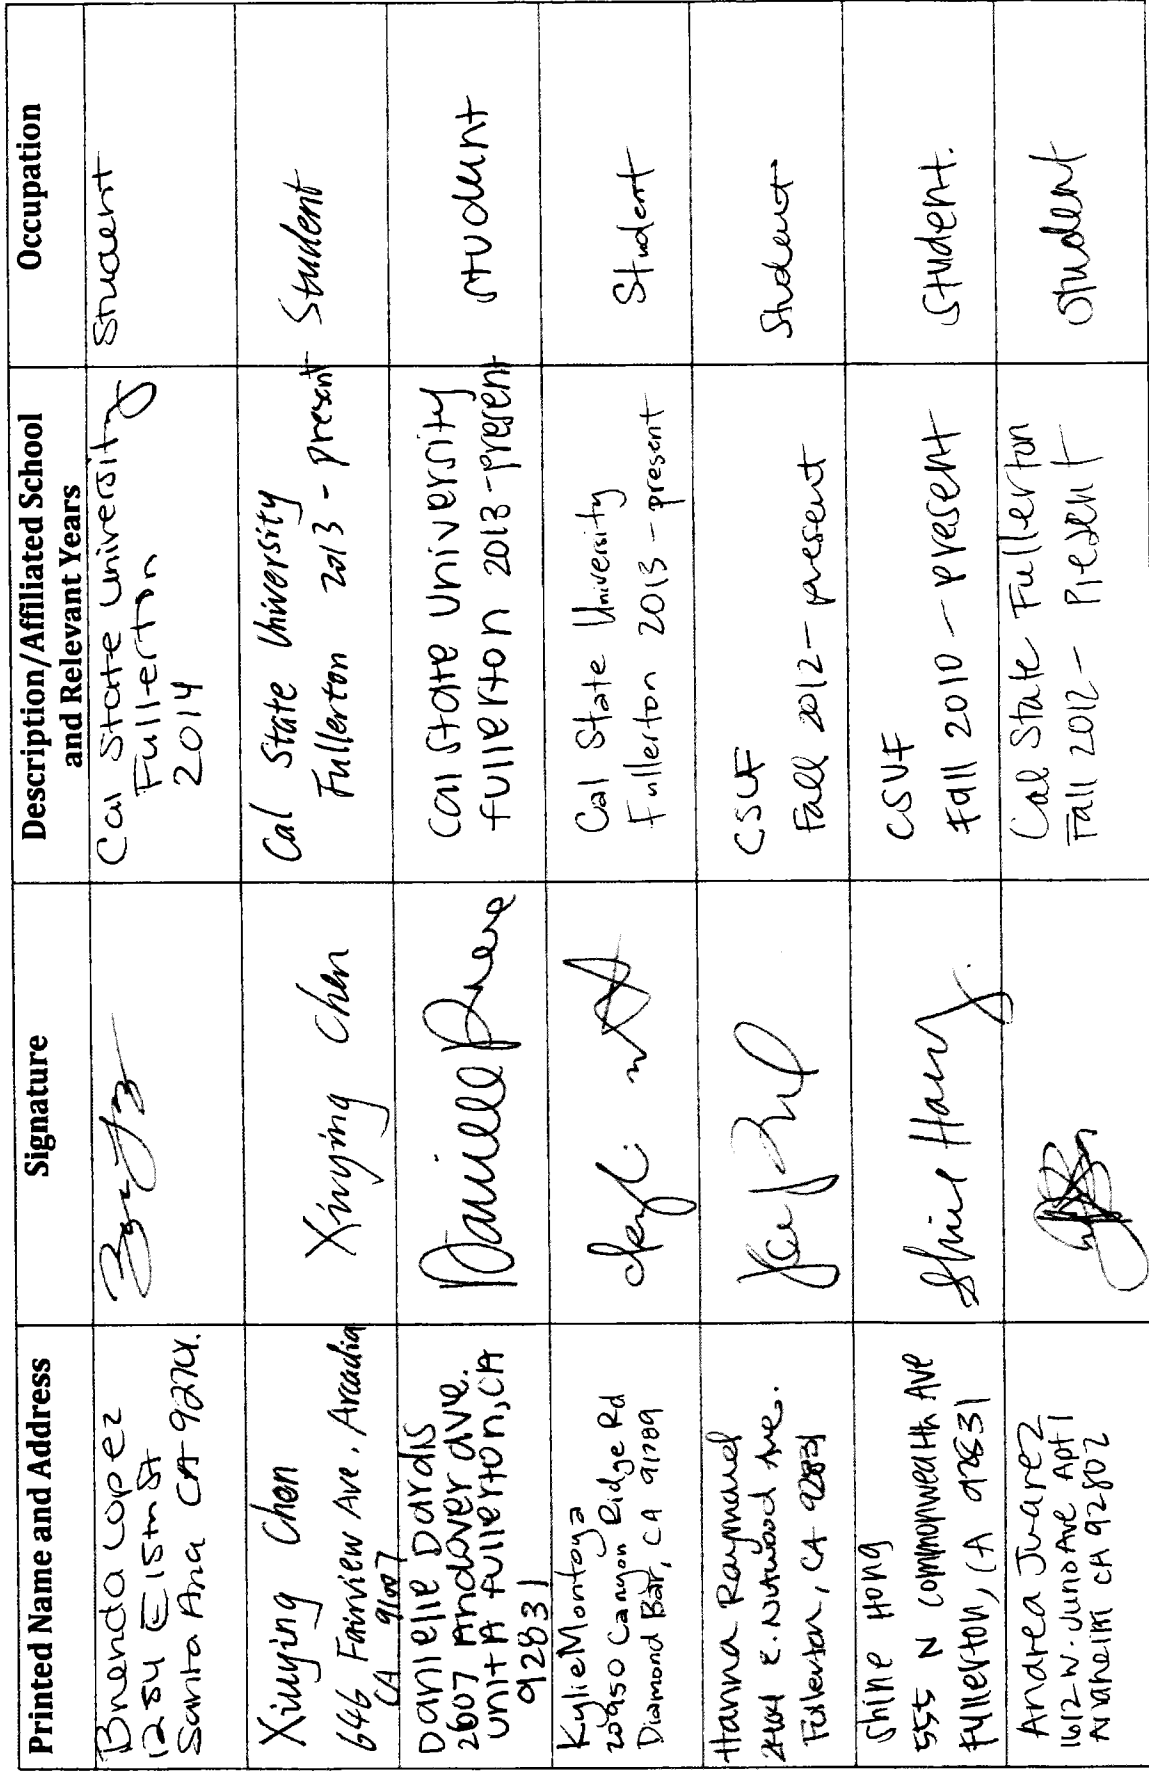 Printed Name and Address
Signature
Description/Affiliated School
and Relevant Years
Occupation
Brenda Lopez
1254 E 15th St
Santa Ana CA
Cal State University
Fullerton
2014
Student
Xinying Chen
646 Fairview Ave. Arcadia
CA 91007
Xinying Chen
Cal State University
Fullerton 2013 - present
Student
Danielle Dardis
2607 Andover ave.
unit A fullerton, CA
92831
Danielle
Cal State University
fullerton 2013 - present
student
Kylie Montoya
20950 Canyon Ridge Rd
Diamond Bar, CA 91789
Cal State University
Fullerton 2013 - present
Student
Hanna Raymund
E. Nutwood Ave.
Fullerton, CA 92831
CSUF
Fall 2012 - present
Student
Shine Hong
555 N Commonwealth Ave
Fullerton, CA 92831
Shine Hong
CSUF
Fall 2010 - present
Student.
Andrea Juarez
1612 W. Juno Ave Apt 1
Anaheim CA 92802
Cal State Fullerton
Fall 2012 - Present
Student